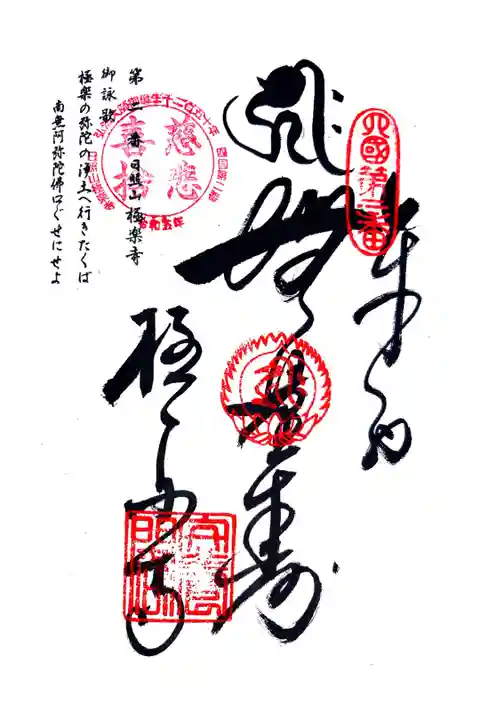 四國第二番
奉納
無量壽
極楽寺
慈悲
喜捨
令和五年
第二番日照山極楽寺
御詠歌
極楽の弥陀の浄土へ行きたくば
南無阿弥陀佛口ぐせにせよ